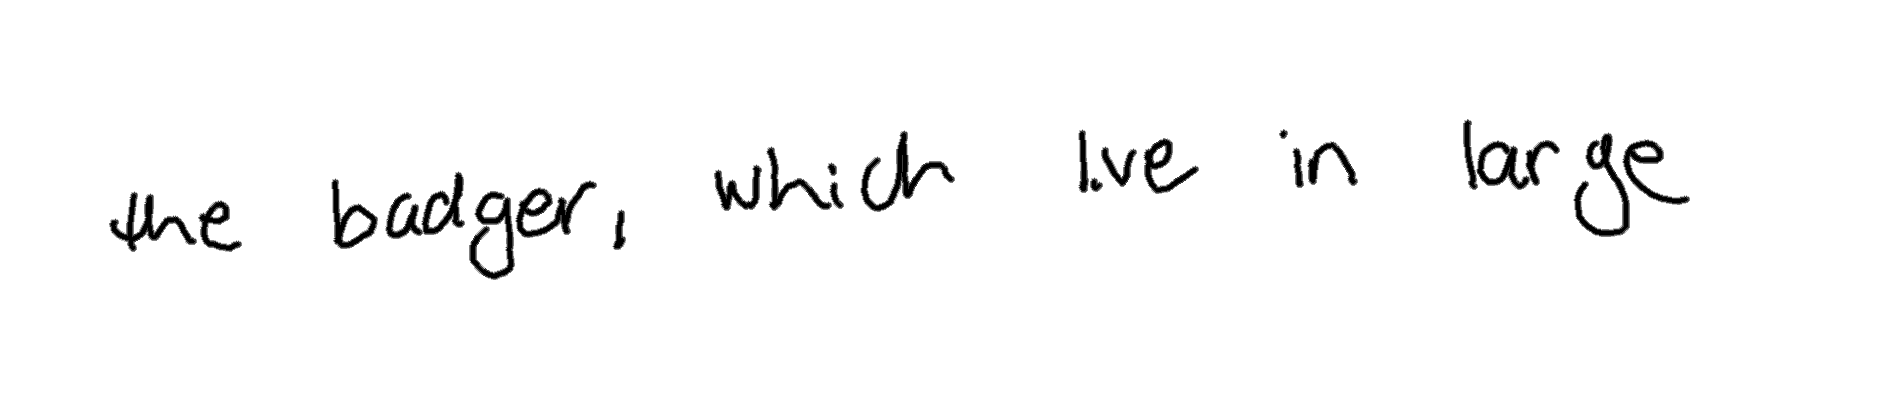 the badger, which live in large